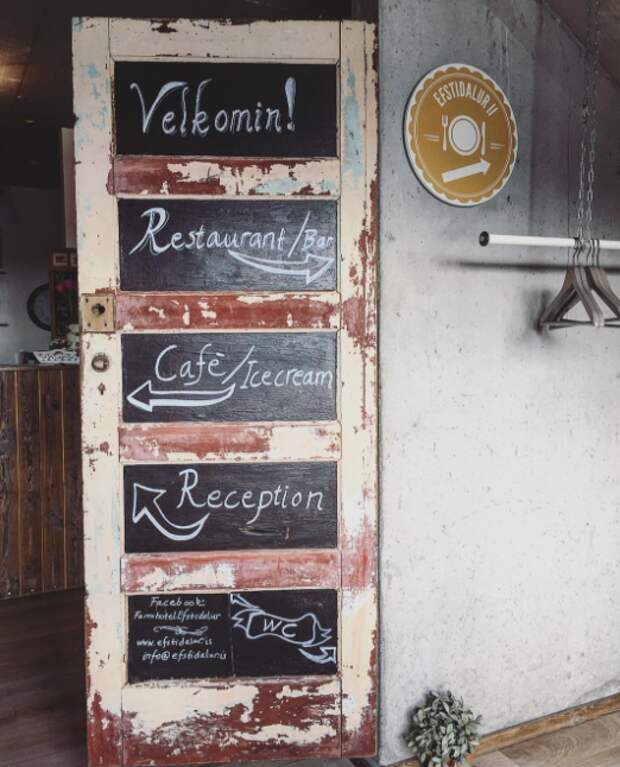 Velkomin!
EFSTIDALUR II
Restaurant/Bar
Cafè/Icecream
Reception
Facebook:
FarmhotelEfstidalur
www.efstidalur.is
info@efstidalur.is
WC